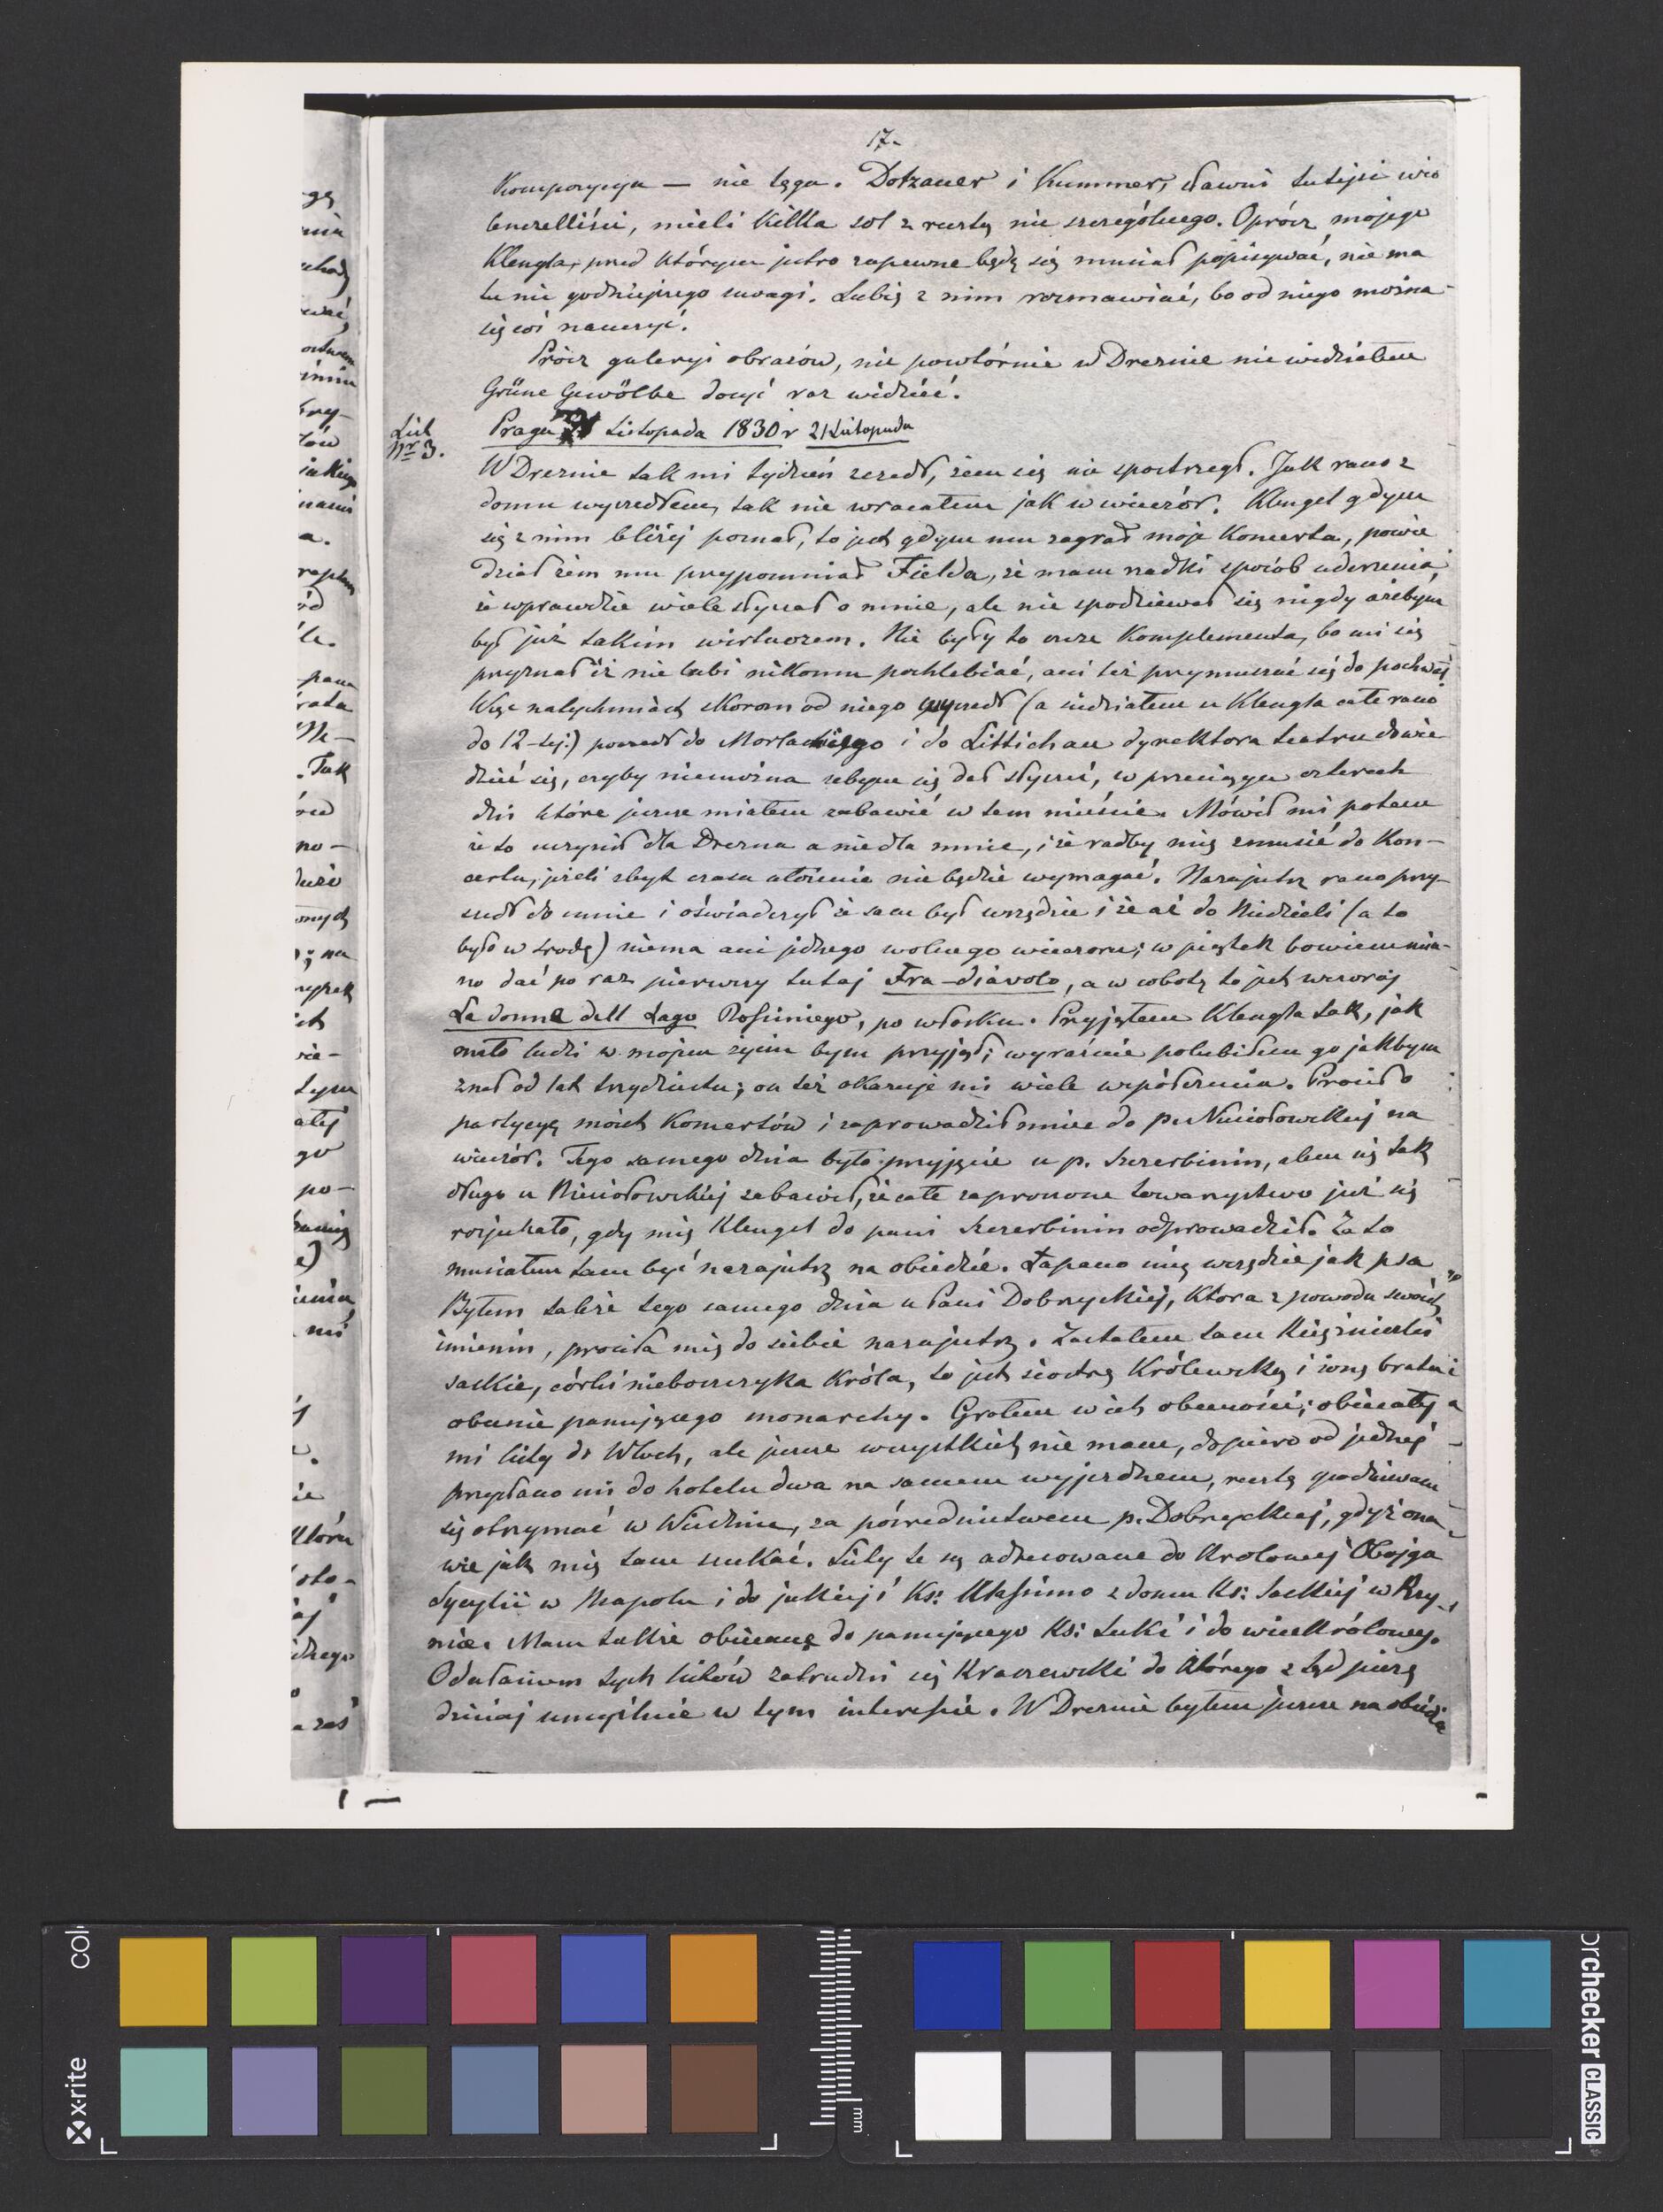 17.
Kompozycyja — nie tęga. Dotzauer i Kummer, sławni tutejsi wio
lenczelliści, mieli kilka sol z resztą nic szczególnego. Oprócz mojego
Klengla, przed którym jutro zapewne będę się musiał popisywać, nie ma
tu nic godniejszego uwagi. Lubię z nim rozmawiać, bo od niego można
się coś nauczyć.
Prócz galeryi obrazów, nic powtórnie w Dreznie nie widziałem
Grüne Gewölbe dosyć raz widzieć.
List
Nr 3.
Praga Listopada 1830 r 21 Listopada
W Dreznie tak mi tydzień zeszedł, żem się nie spostrzegł. Jak rano z
domu wyszedłem, tak nie wracałem jak w wieczór. Klengel gdym
się z nim bliżej poznał, to jest gdym mu zagrał moje Koncerta, powie
dział żem mu przypomniał Fielda, że mam rzadki sposób uderzenia,
że wprawdzie wiele słyszał o mnie, ale nie spodziewał się nigdy ażebym
był już takim wirtuozem. Nie były to czcze komplementa, bo mi się
przyznał iż nie lubi nikomu pochlebiać, ani też przymuszać się do pochwał
Więc natychmiast skorom od niego wyszedł (a siedziałem u Klengla całe rano
do 12-tej.) poszedł do Morlachiego i do Littichau dyrektora teatru dowie
dzieć się, czyby niemożna żebym się dał słyszeć, w przeciągu czterech
dni które jeszcze miałem zabawić w tem mieście. Mówił mi potem
że to uczynił dla Drezna a nie dla mnie, i że radby mię zmusić do Kon-
certu, jeżeli zbyt czasu ułożenie nie będzie wymagać. Nazajutrz rano przy-
szedł do mnie i oświadczył że sam był wszędzie i że aż do Niedzieli (a to
było w środę) niema ani jednego wolnego wieczoru; w piątek bowiem mia-
no dać po raz pierwszy tutaj Fra-diavolo, a w sobotę to jest wczoraj
La donna dell Lago Rossiniego, po włosku. Przyjąłem Klengla tak, jak
mało ludzi w mojem życiu bym przyjął; wyraźnie polubiłem go jakbym
znał od lat trzydziestu; on też okazuje mi wiele współczucia. Prosił o
partycyę moich Koncertów i zaprowadził mnie do p. Niesiołowskiej na
wieczór. Tego samego dnia było przyjęcie u p. Szczerbinin, alem się tak
długo u Niesiołowskiej zabawił, że całe zaproszone towarzystwo już się
rozjechało, gdy mię Klengel do pani Szczerbinin odprowadził. Za to
musiałem tam być nazajutrz na obiedzie. Łapano mię wszędzie jak psa
Byłem także tego samego dnia u Pani Dobrzyckiej, która z powodu swoich
imienin, prosiła mię do siebie nazajutrz. Zastałem tam Księżniczki
saskie, córki nieboszczyka Króla, to jest siostrę Królewską i żonę brata
obecnie panującego monarchy. Grałem w ich obecności; obiecały
mi listy do Włoch, ale jeszcze wszystkich nie mam, dopiero od jednej
przysłano mi do hotelu dwa na samem wyjezdnem, resztę spodziewam
się otrzymać w Wiedniu, za pośrednictwem p. Dobrzyckiej, gdyż ona
wie jak mię tam szukać. Listy te są adresowane do Królowej Obojga
Sycylii w Neapolu i do jakiejś Ks: Ulassimo z domu Ks: Saskiej w Rzy-
mie. Mam także obiecane do panującego Ks: Luki i do wicekrólowej.
Odesłaniem tych listów zatrudni się Kraszewski do którego z tąd piszę
dzisiaj umyślnie w tym interesie. W Dreznie byłem jeszcze na obiedzie